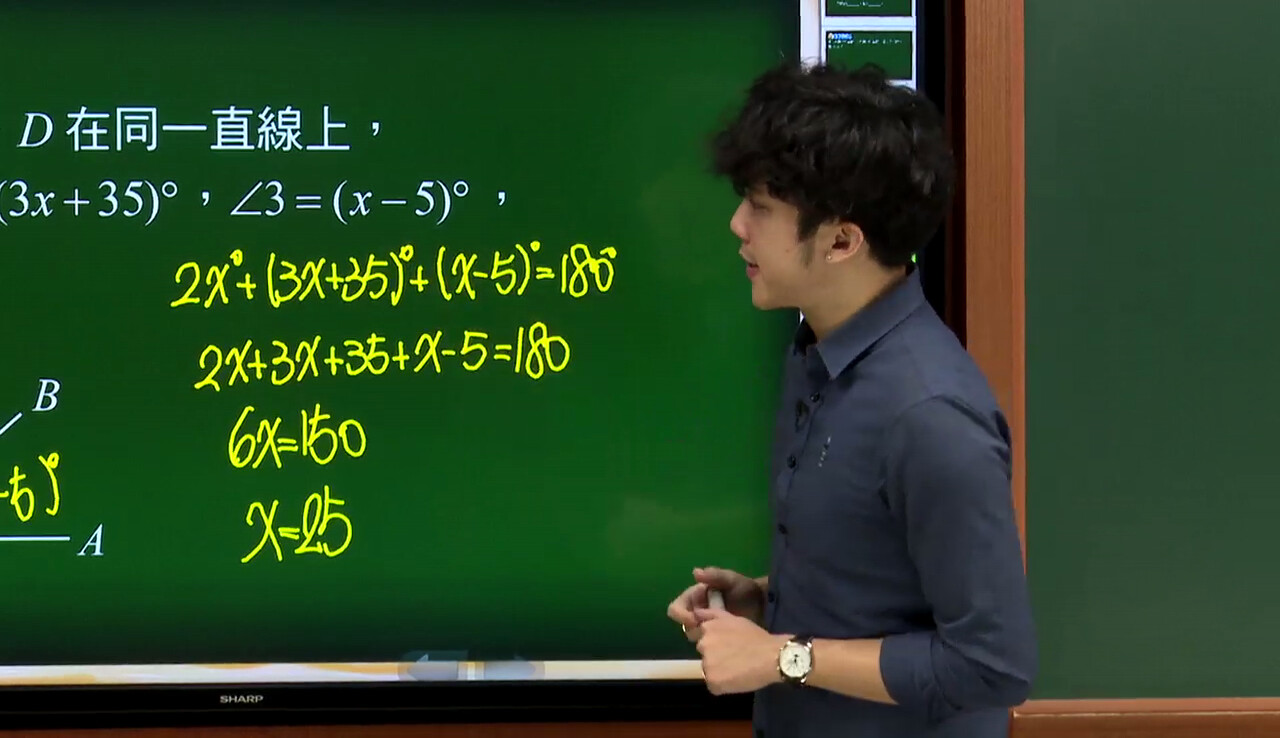 D 在同一直線上，
(3x+35)°，∠3=(x−5)°，
2x°+(3x+35)°+(x-5)°=180°
2x+3x+35+x-5=180
B
6x=150
-5)°
x=25
A
SHARP